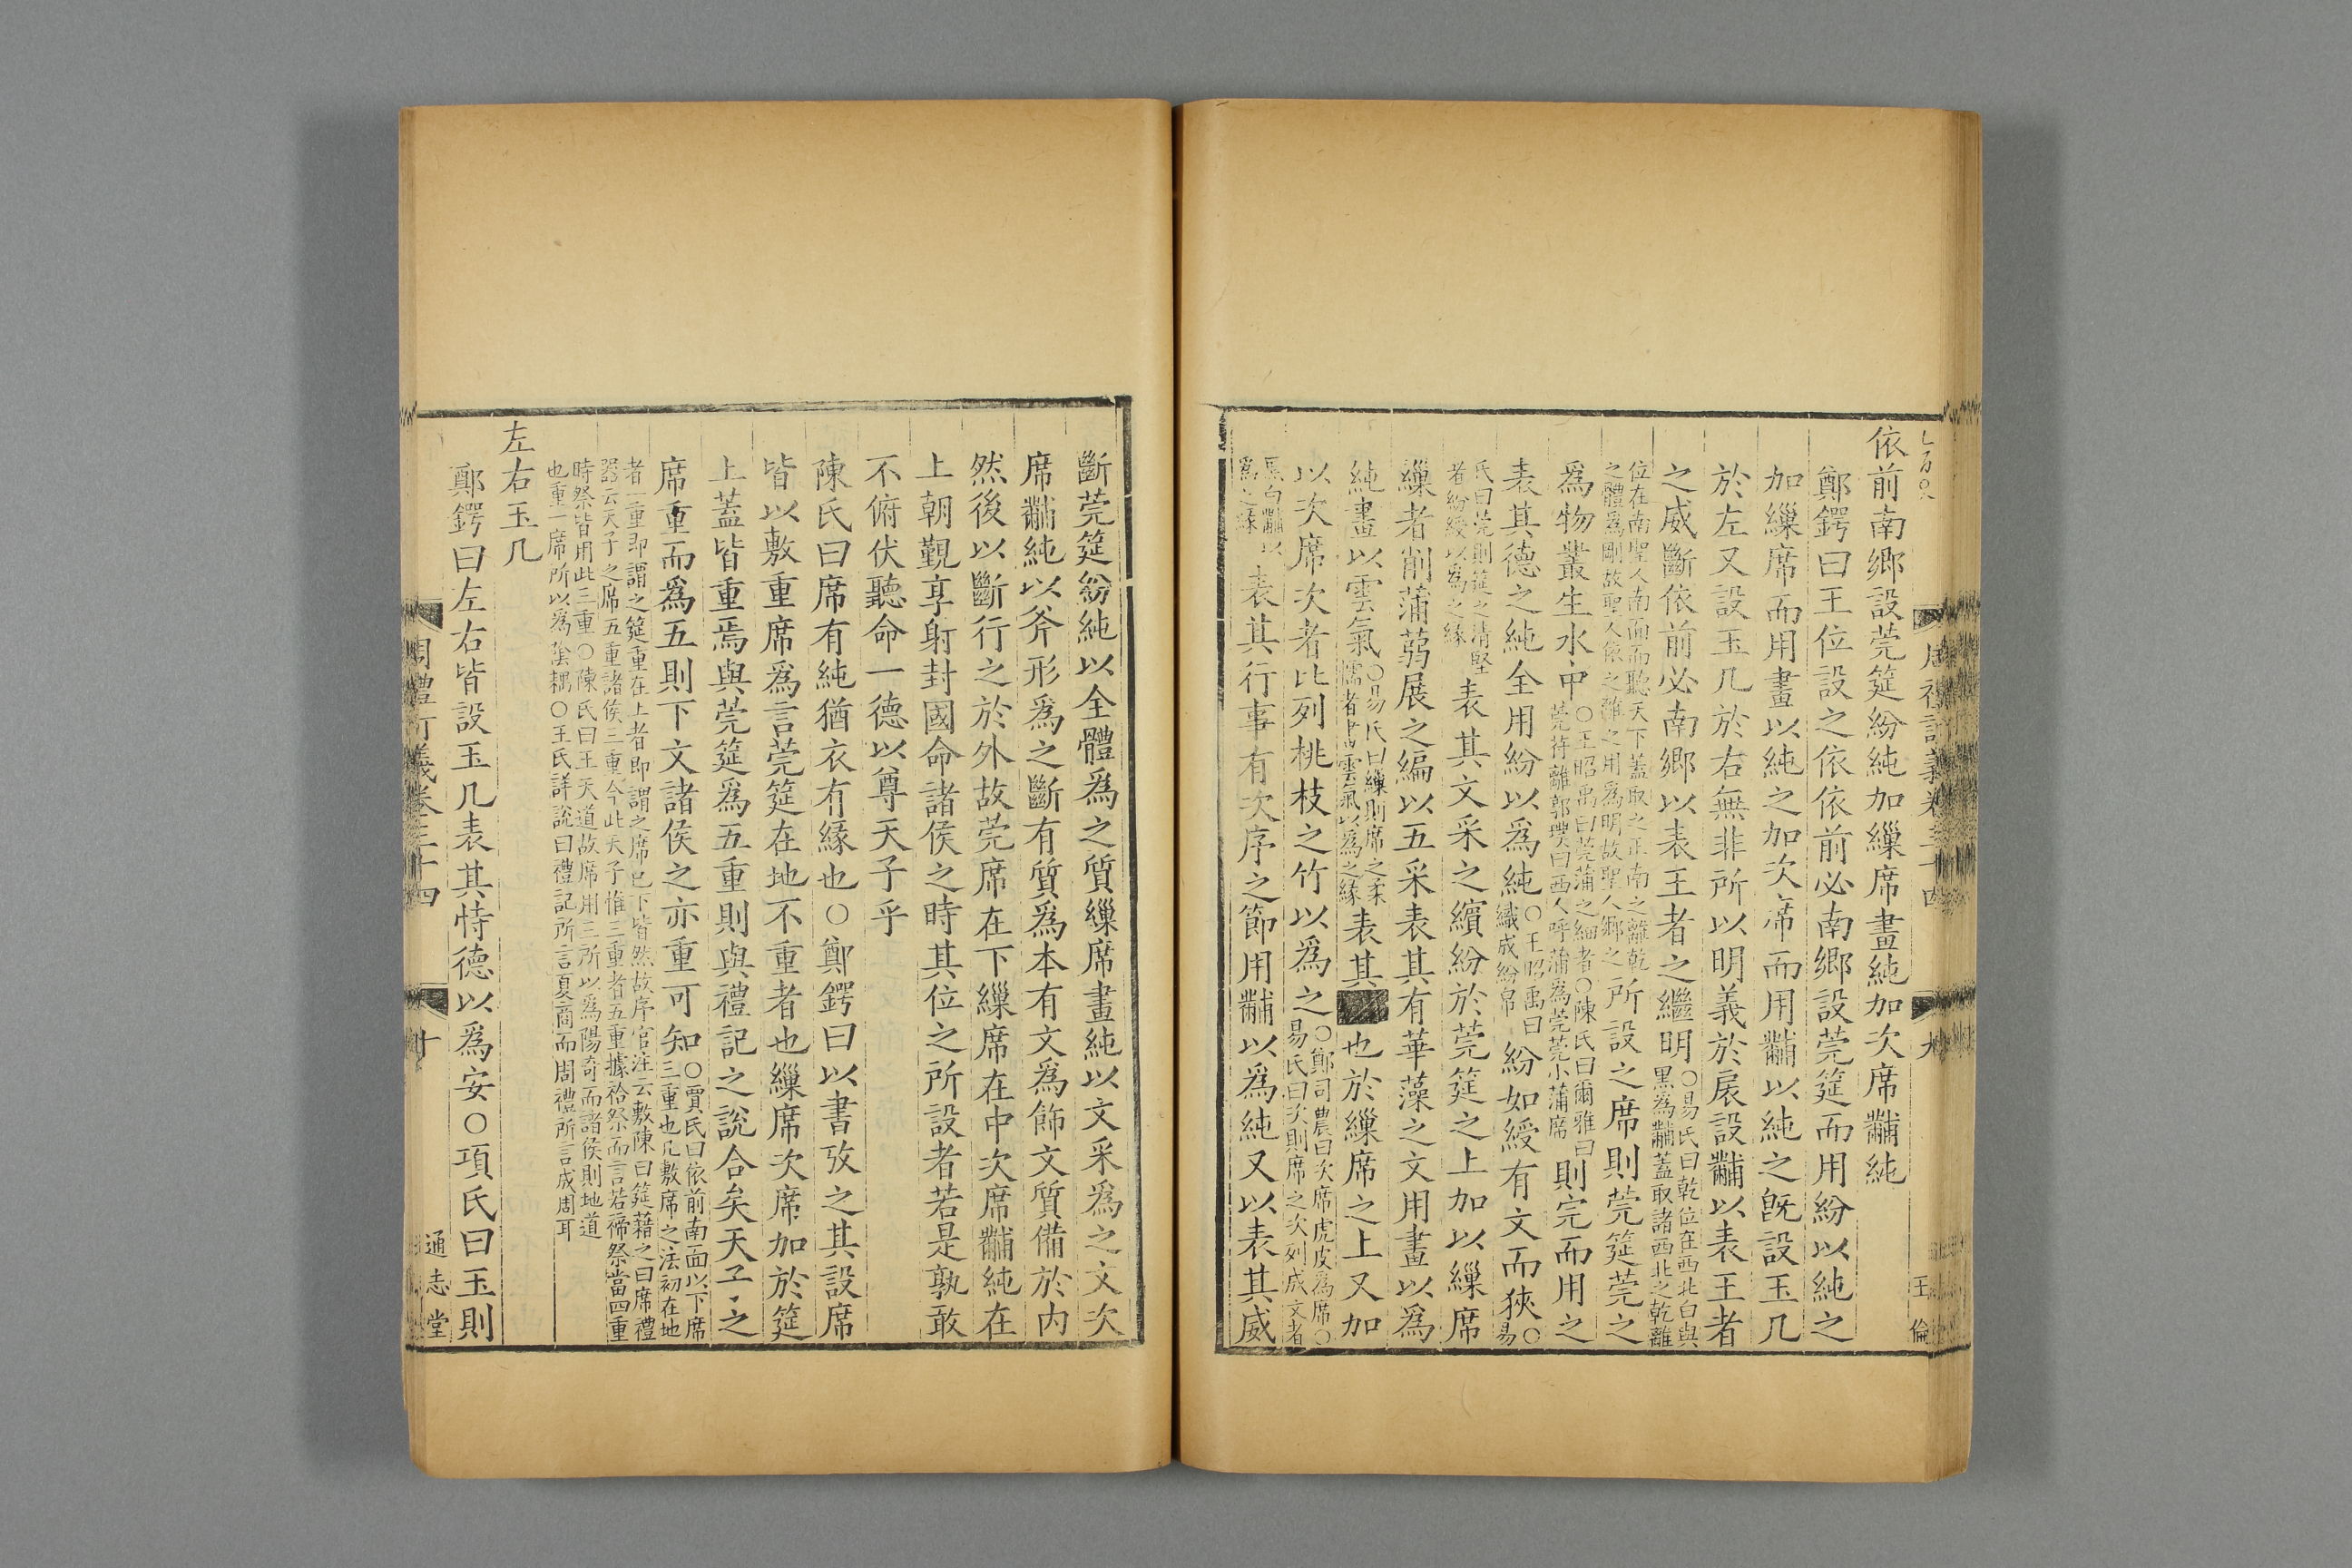 依前南鄉設莞筵紛純加繅席畫純加次席黼純
鄭鍔曰王位設之依依前必南鄉設莞筵而用紛以純之
加繅席而用畫以純之加次席而用黼以純之旣設玉几
於左又設玉几於右無非所以明義於扆設黼以表王者
之威斷依前必南鄉以表王者之繼明○易氏曰乾位在西北白與
黑爲黼蓋取諸西北之乾離
位在南聖人南面而聽天下蓋取之正南之離乾
之體爲剛故聖人依之離之用爲明故聖人鄉之所設之席則莞筵莞之
爲物叢生水中○王昭禹曰莞蒲之細者○陳氏曰爾雅曰
莞苻蘺郭璞曰西人呼蒲爲莞莞小蒲席則完而用之
表其德之純全用紛以爲純○王昭禹曰
織成紛帛紛如綬有文而狹○
易
氏曰莞則筵之清堅
者紛綬以爲之緣表其文采之繽紛於莞筵之上加以繅席
繅者削蒲蒻展之編以五采表其有華藻之文用畫以爲
純畫以雲氣○易氏曰繅則席之柔
懦者畫雲氣以爲之緣表其也於繅席之上又加
以次席次者比列桃枝之竹以爲之○鄭司農曰次席虎皮爲席○
易氏曰次則席之次列成文者
黑白黼以
爲之緣表其行事有次序之節用黼以爲純又以表其威
周禮訂義卷三十四
九
王倫
斷莞筵紛純以全體爲之質繅席畫純以文采爲之文次
席黼純以斧形爲之斷有質爲本有文爲飾文質備於内
然後以斷行之於外故莞席在下繅席在中次席黼純在
上朝覲享射封國命諸侯之時其位之所設者若是孰敢
不俯伏聽命一德以尊天子乎
陳氏曰席有純猶衣有緣也○鄭鍔曰以書攷之其設席
皆以敷重席爲言莞筵在地不重者也繅席次席加於筵
上蓋皆重焉與莞筵爲五重則與禮記之說合矣天子之
席重而爲五則下文諸侯之亦重可知○賈氏曰依前南面以下席
三重也凡敷席之法初在地
者一重即謂之筵重在上者即謂之席已下皆然故序官注云敷陳曰筵藉之曰席禮
器云天子之席五重諸侯三重今此天子惟三重者五重據祫祭而言若禘祭當四重
時祭皆用此三重○陳氏曰王天道故席用三所以爲陽奇而諸侯則地道
也重二席所以爲陰耦○王氏詳說曰禮記所言夏商而周禮所言成周耳
左右玉几
鄭鍔曰左右皆設玉几表其恃德以爲安○項氏曰玉則
周禮訂義卷三十四
十
通志堂